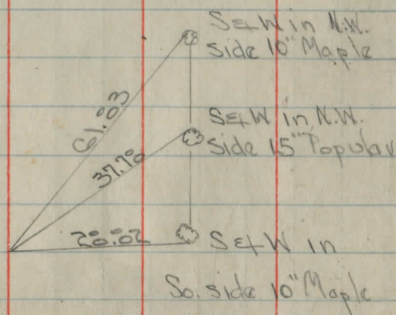 S&W in N.W.
side 10" Maple
61.03
S&W in N.W.
side 15" Popular
37.70
20.02
S&W in
So. side 10" Maple